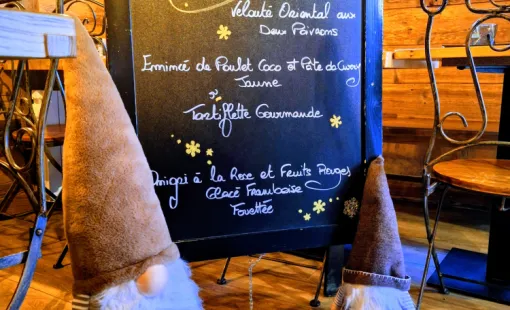 Velouté Oriental aux
Deux Poivrons
Emincé de Poulet Coco et Pate de Curry
Jaune
Tartiflette Gourmande
à la Rose et Fruits Rouges
Glacé Framboise
Fouettée